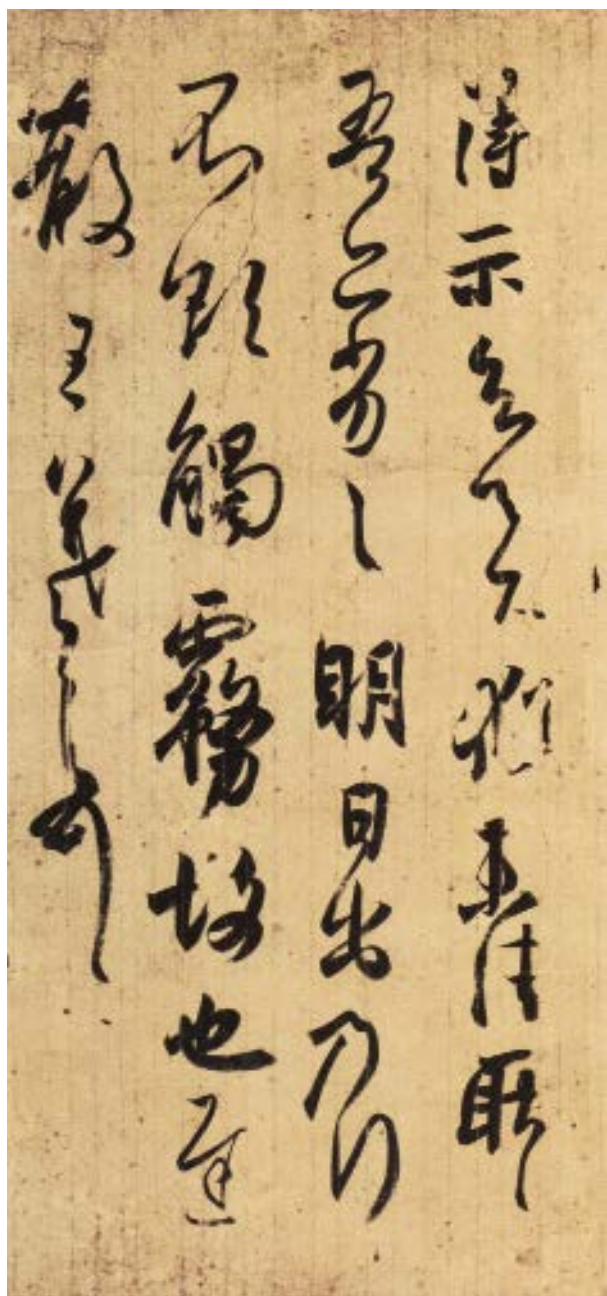 得示知足下猶未佳耿々
吾亦劣々明日出乃行
不欲觸霧故也遲
散王羲之頓首